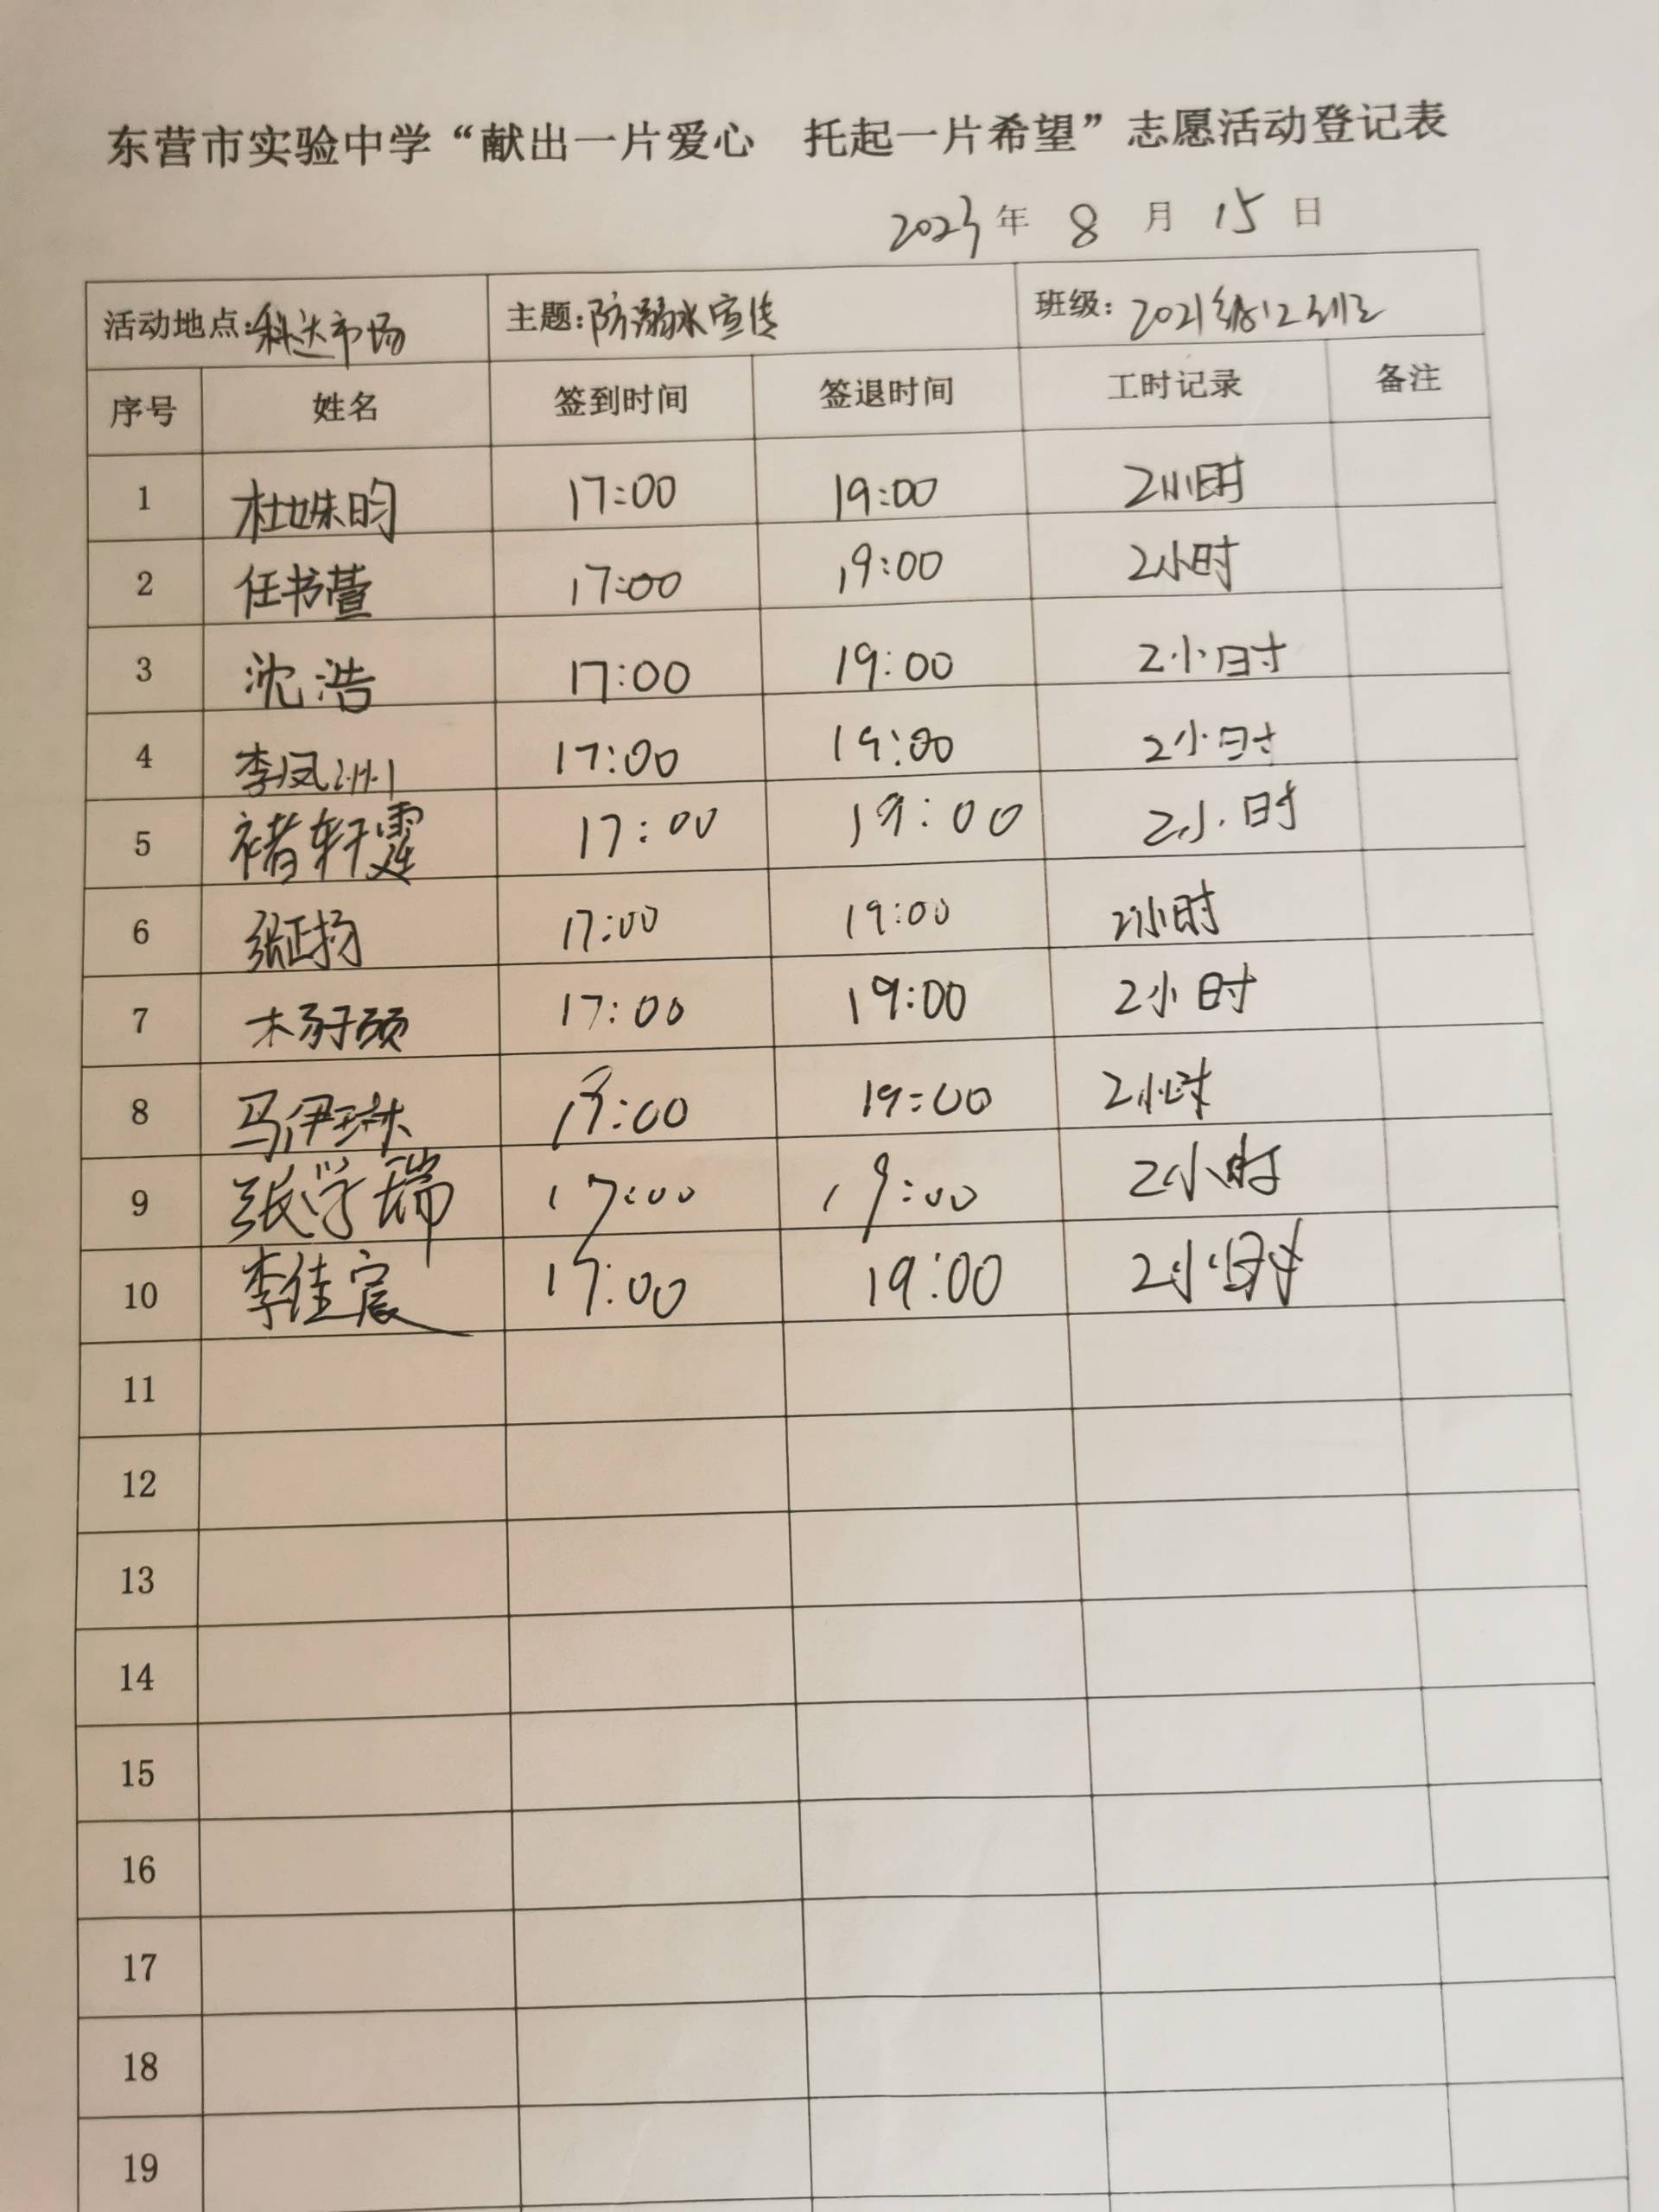 东营市实验中学“献出一片爱心 托起一片希望”志愿活动登记表
2023年 8 月 15 日
活动地点:科达市场 主题:防溺水宣传 班级:2021级12班
序号 姓名 签到时间 签退时间 工时记录 备注
1 杜姝昀 17:00 19:00 2小时
2 任书萱 17:00 19:00 2小时
3 沈浩 17:00 19:00 2小时
4 李凤洲 17:00 19:00 2小时
5 褚轩霆 17:00 19:00 2小时
6 张正扬 17:00 19:00 2小时
7 17:00 19:00 2小时
8 马伊琳 17:00 19:00 2小时
9 张学瑞 17:00 19:00 2小时
10 李佳宸 17:00 19:00 2小时
11
12
13
14
15
16
17
18
19